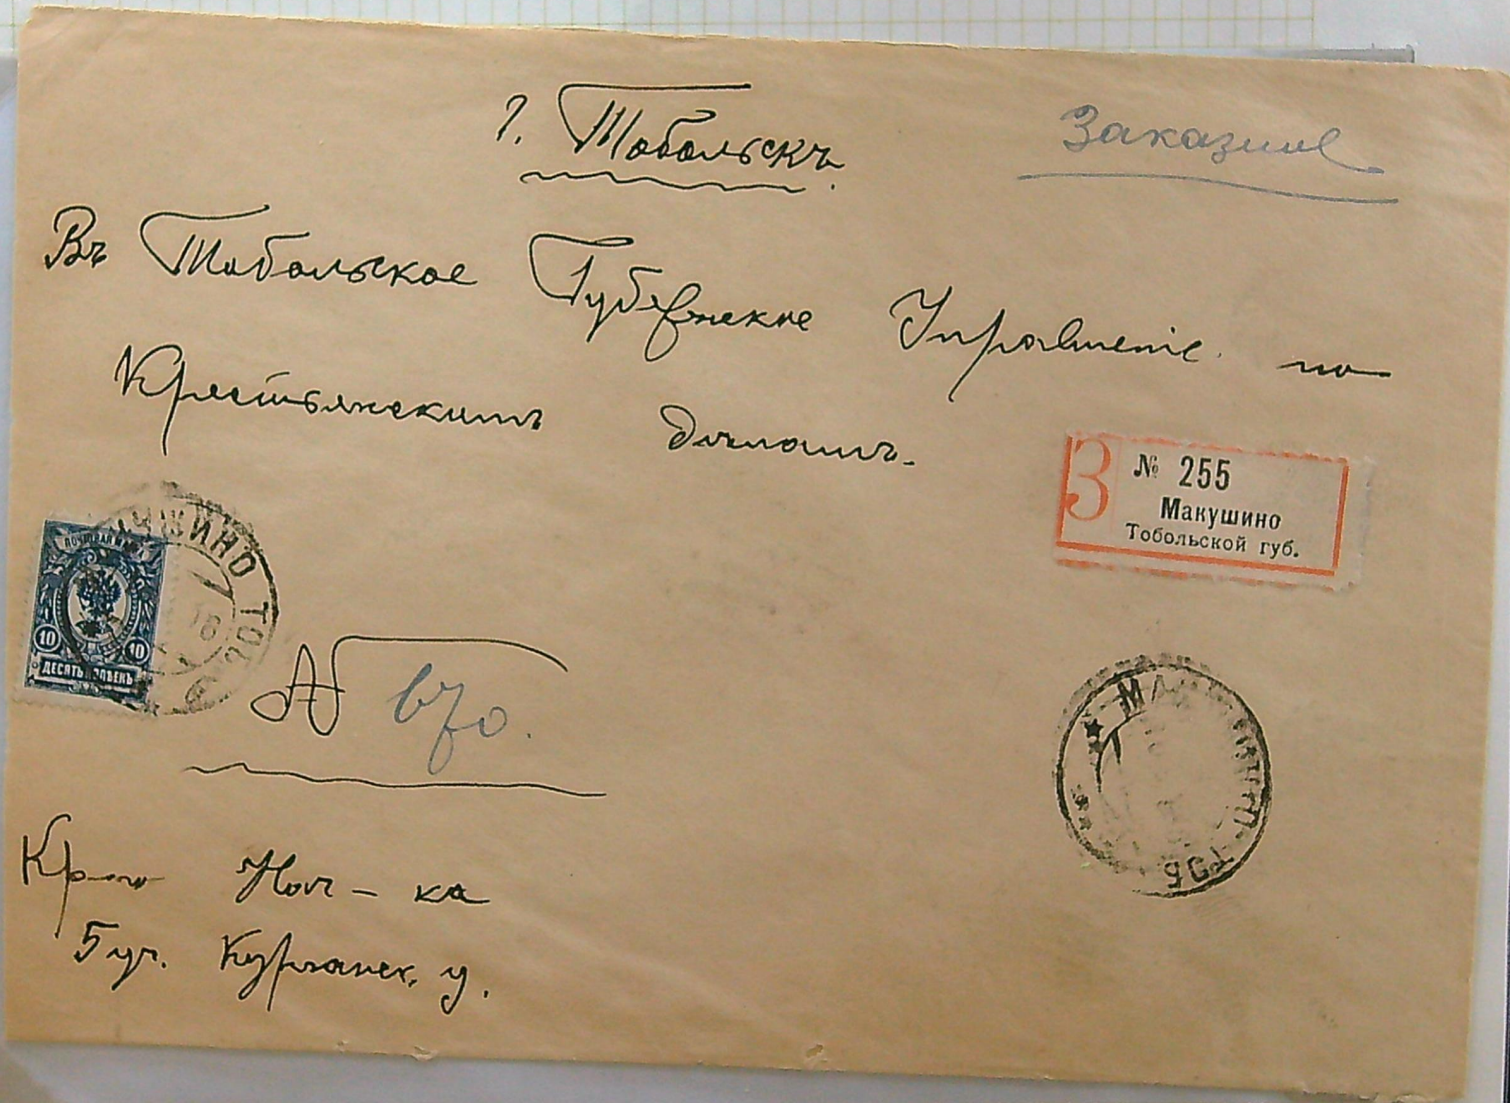 г. Тобольскъ.
Заказное
Въ Тобольское Губернское Управленіе по
Крестьянскимъ дѣламъ.
З
№ 255
Макушино
Тобольской губ.
ПОЧТОВАЯ МАРКА
10 10
ДЕСЯТЬ КОПѢЕКЪ
МАКУШИНО ТОБ
18
№ 670.
МАКУШИНО ТОБ
Кр-го Нач-ка
5 уч. Курганск. у.